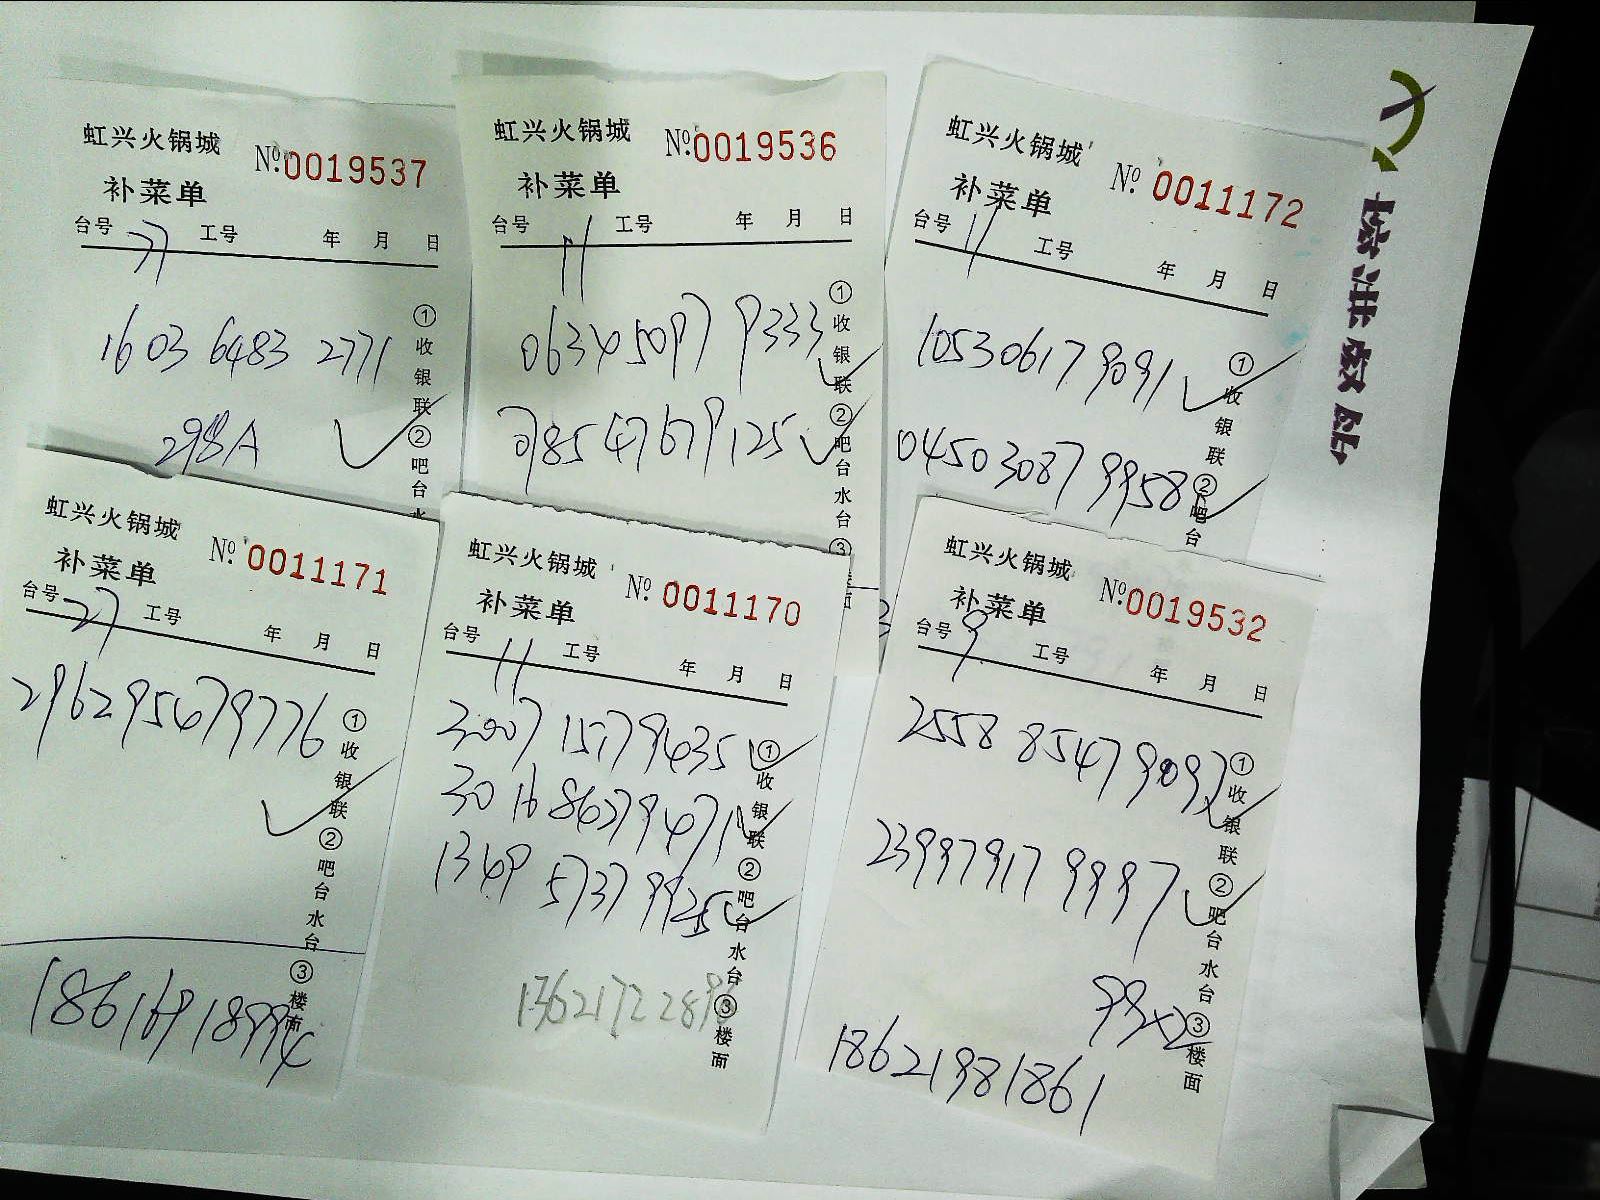 虹兴火锅城 No. 0019537
补菜单
台号 工号 年 月 日
1603 6483 2771
298A
①收银联②吧台水
虹兴火锅城 No. 0019536
补菜单
台号 11 工号 年 月 日
0634 5097 9333
0985 4767 9125
①收银联②吧台水台③
虹兴火锅城 No. 0011172
补菜单
台号 11 工号 年 月 日
1053 0617 9091
0450 3087 9958
①收银联②吧台
虹兴火锅城 No. 0011171
补菜单
台号 27 工号 年 月 日
2962 9547 9776
18616918994
①收银联②吧台水台③楼面
虹兴火锅城 No. 0011170
补菜单
台号 11 工号 年 月 日
3007 1577 9435
3016 8627 9471
1349 5737 9925
1362172289
①收银联②吧台水台③楼面
虹兴火锅城 No. 0019532
补菜单
台号 9 工号 年 月 日
2558 8547 9092
2399 7917 9997
99x2
18621981861
①收银联②吧台水台③楼面